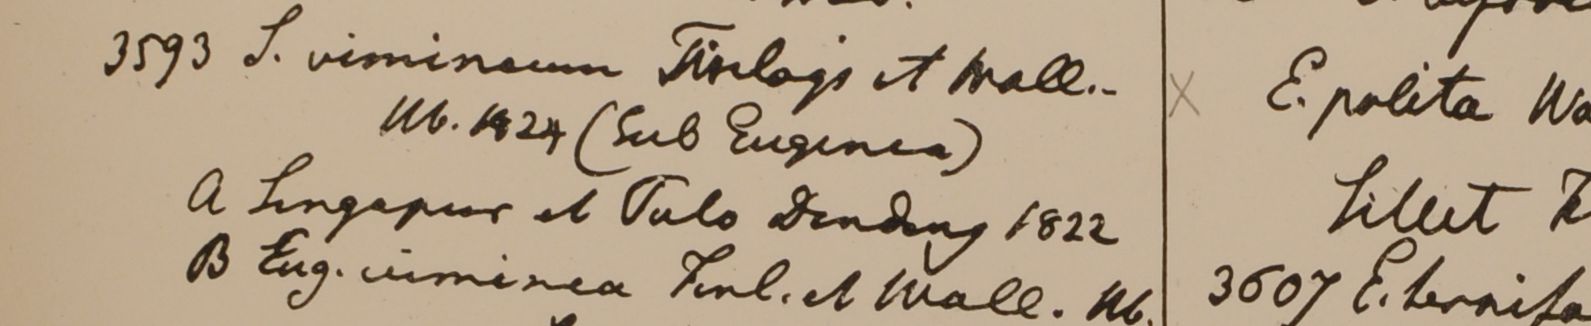 3593 S. vimineum Finlays et Wall..
Hb. 1824 (Sub Eugenia)
A Singapur et Pulo Dinding 1822
B Eug. viminea Finl. et Wall. Hb.
E. polita Wa
Sillet
3607 E.